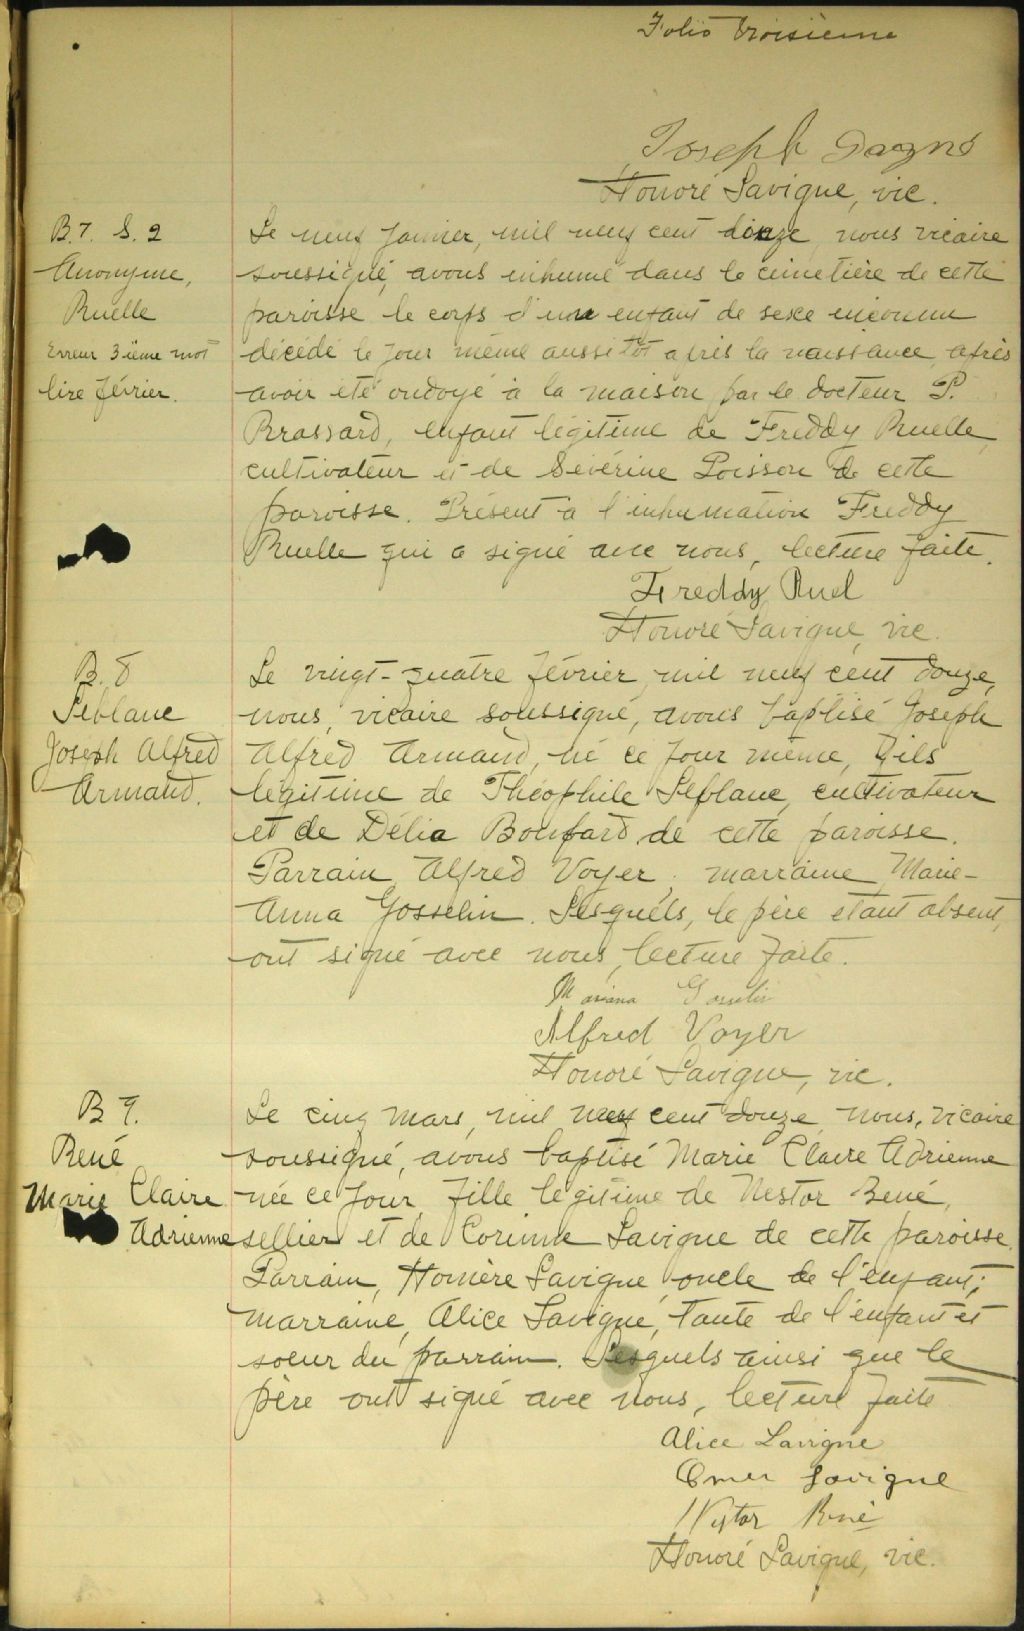 Folio troisième
Joseph Gagné
Honoré Lavigne, vic.
B. 7. S. 2
Anonyme,
Ruelle
Erreur 3ième mot
lire février.
Le neuf janvier, mil neuf cent douze, nous vicaire
soussigné, avons inhumé dans le cimetière de cette
paroisse le corps d'un enfant de sexe inconnu
décédé le jour même aussitôt après la naissance, après
avoir été ondoyé à la maison par le docteur P.
Brassard, enfant légitime de Freddy Ruelle,
cultivateur et de Séverine Poisson de cette
paroisse. Présent à l'inhumation Freddy
Ruelle qui a signé avec nous, lecture faite.
Freddy Ruel
Honoré Lavigne, vic.
B. 8
Leblanc
Joseph Alfred
Armand.
Le vingt-quatre février, mil neuf cent douze,
nous, vicaire soussigné, avons baptisé Joseph
Alfred Armand, né ce jour même, fils
légitime de Théophile Leblanc, cultivateur
et de Délia Boufard de cette paroisse.
Parrain, Alfred Voyer, marraine, Marie-
Anna Gosselin. Lesquels, le père étant absent,
ont signé avec nous, lecture faite.
Mariana Gosselin
Alfred Voyer
Honoré Lavigne, vic.
B 9.
René
Marie Claire
Adrienne
Le cinq mars, mil neuf cent douze, nous, vicaire
soussigné, avons baptisé Marie Claire Adrienne
née ce jour, fille légitime de Nestor René,
sellier et de Corinne Lavigne de cette paroisse.
Parrain, Homère Lavigne, oncle de l'enfant;
marraine, Alice Lavigne, tante de l'enfant et
soeur du parrain. Lesquels ainsi que le
père ont signé avec nous, lecture faite
Alice Lavigne
Omer Lavigne
Nestor René
Honoré Lavigne, vic.